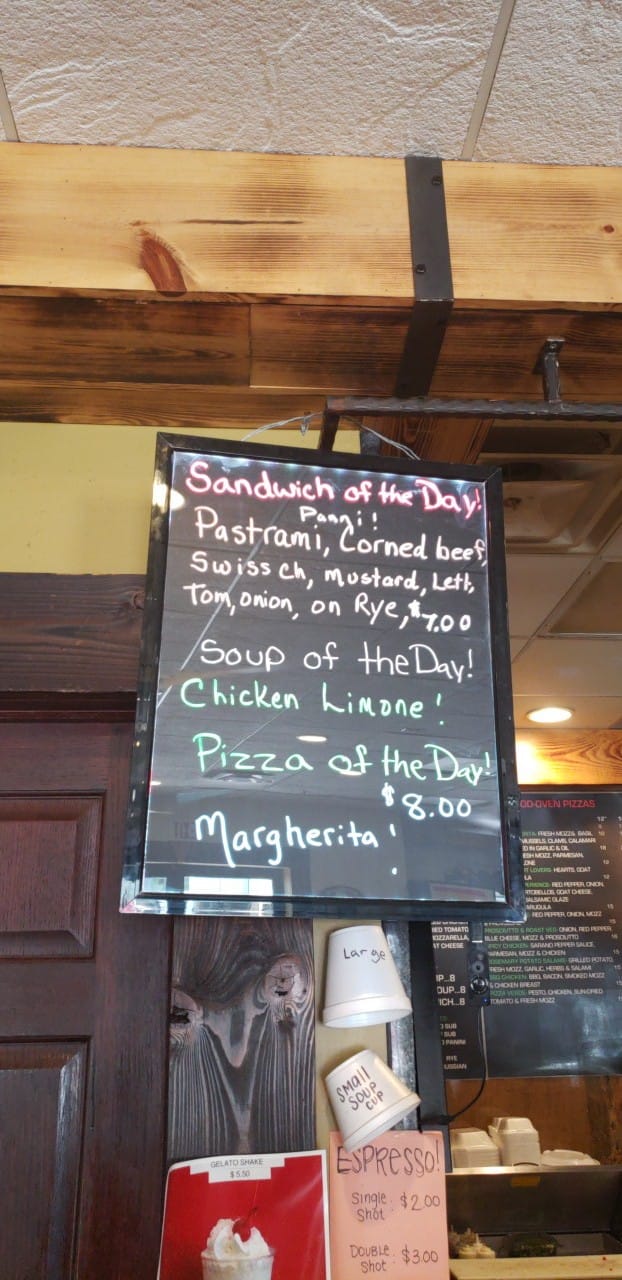 Sandwich of the Day!
Panni!
Pastrami, Corned beef,
Swiss ch, mustard, Lett,
Tom, onion, on Rye, $7.00
Soup of the Day!
Chicken Limone!
Pizza of the Day!
$8.00
Margherita!
Large
Small
Soup
Cup
ESPRESSO!
Single Shot. $2.00
DOUBLE Shot. $3.00
GELATO SHAKE
$5.50
OD-OVEN PIZZAS
12"
FRESH MOZZA, BASIL
MUSSELS, CLAMS, CALAMARI
ED IN GARLIC & OIL
ESH MOZZ, PARMESAN,
HEARTS, GOAT
RED PEPPER, ONION,
GOAT CHEESE,
BALSAMIC GLAZE
RED PEPPER, ONION, MOZZ
PROSCIUTTO & ROAST VEG: ONION, RED PEPPER,
BLUE CHEESE, MOZZ & PROSCIUTTO
CHICKEN: SARANO PEPPER SAUCE,
PARMESAN, MOZZ & CHICKEN
ROSEMARY POTATO SALAMI: GRILLED POTATO,
FRESH MOZZ, GARLIC, HERBS & SALAMI
BBQ CHICKEN: BBQ, BACON, SMOKED MOZZ
& CHICKEN BREAST
PIZZA VERDE: PESTO, CHICKEN, SUN-DRIED
TOMATO & FRESH MOZZ
ED TOMATO,
OZZARELLA,
AT CHEESE
UP...8
OUP...8
ICH...8
D SUB
SUB
D PANINI
RYE
USSIAN